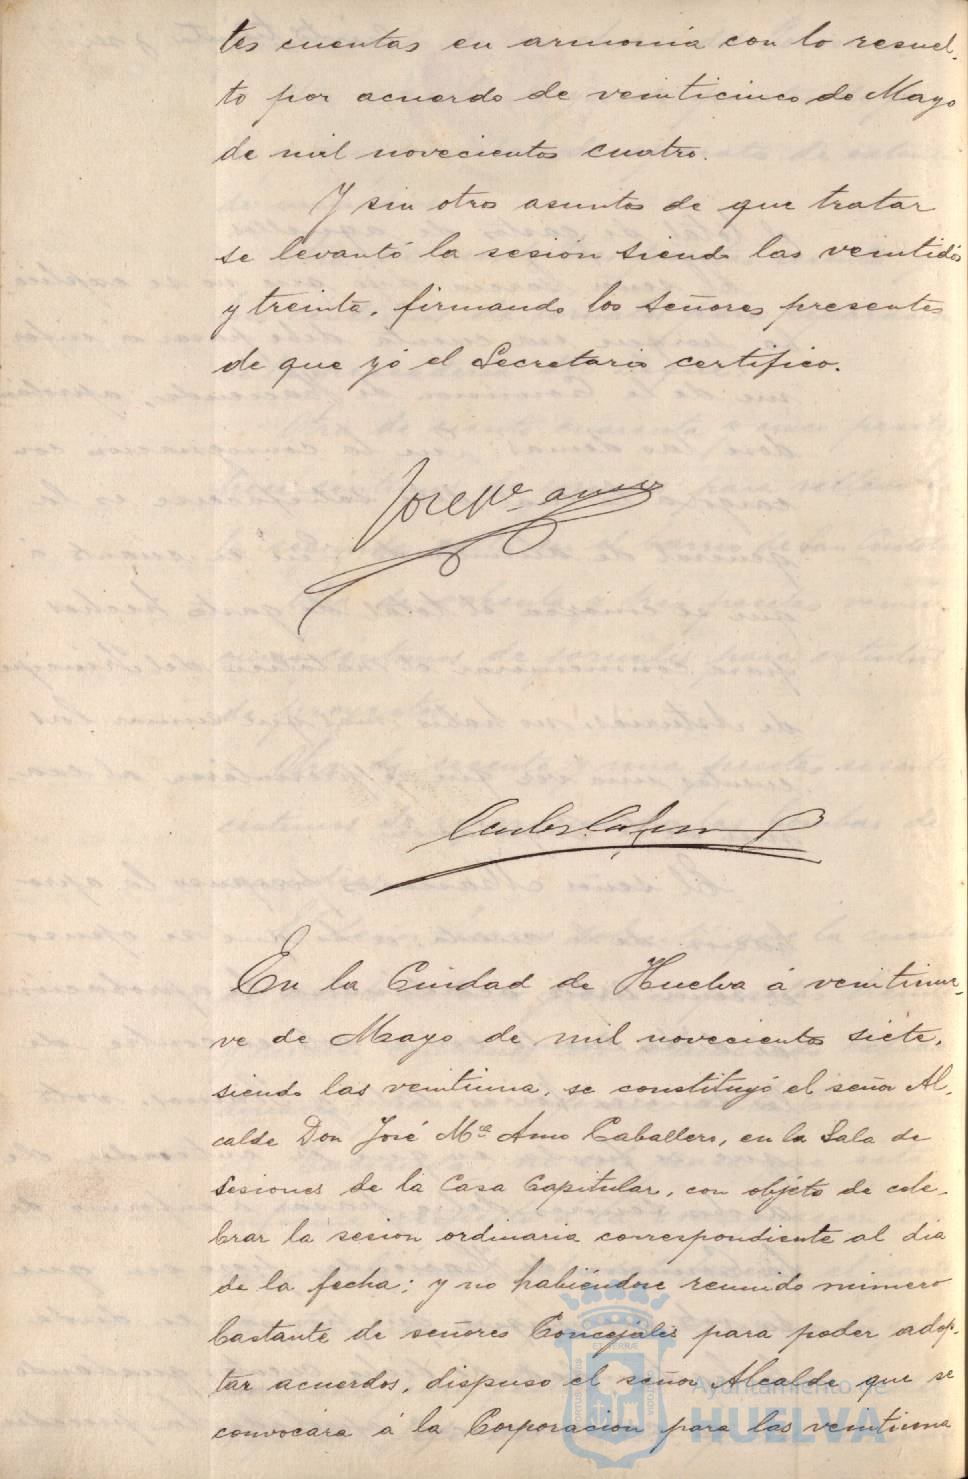 tes cuentas en armonia con lo resuel-
to por acuerdo de veinticinco de Mayo
de mil novecientos cuatro.
Y sin otros asuntos de que tratar
se levantó la sesión siendo las veintidós
y treinta, firmando los señores presentes
de que yó el Secretario certifico.
José Mª Amo
En la Ciudad de Huelva á veintinue-
ve de Mayo de mil novecientos siete,
siendo las veintiuna, se constituyó el señor Al-
calde Don José Mª Amo Caballero, en la Sala de
Sesiones de la Casa Capitular, con objeto de cele-
brar la sesion ordinaria correspondiente al dia
de la fecha; y no habiéndose reunido número
bastante de señores Concejales para poder adop-
tar acuerdos, dispuso el señor Alcalde que se
convocára á la Corporación para las veintiuna
Ayuntamiento de
HUELVA